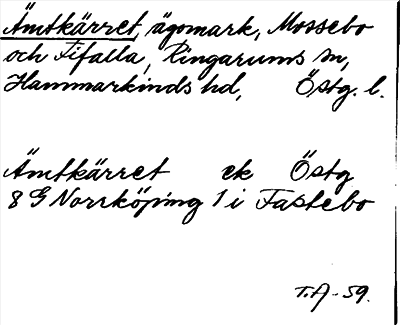 Ämtkärret, ägomark, Mossebo
och Fifalla, Ringarums sn,
Hammarkinds hd, Östg. l.
Ämtkärret ek Östg
8 G Norrköping 1 i Fastebo
T.A -59.